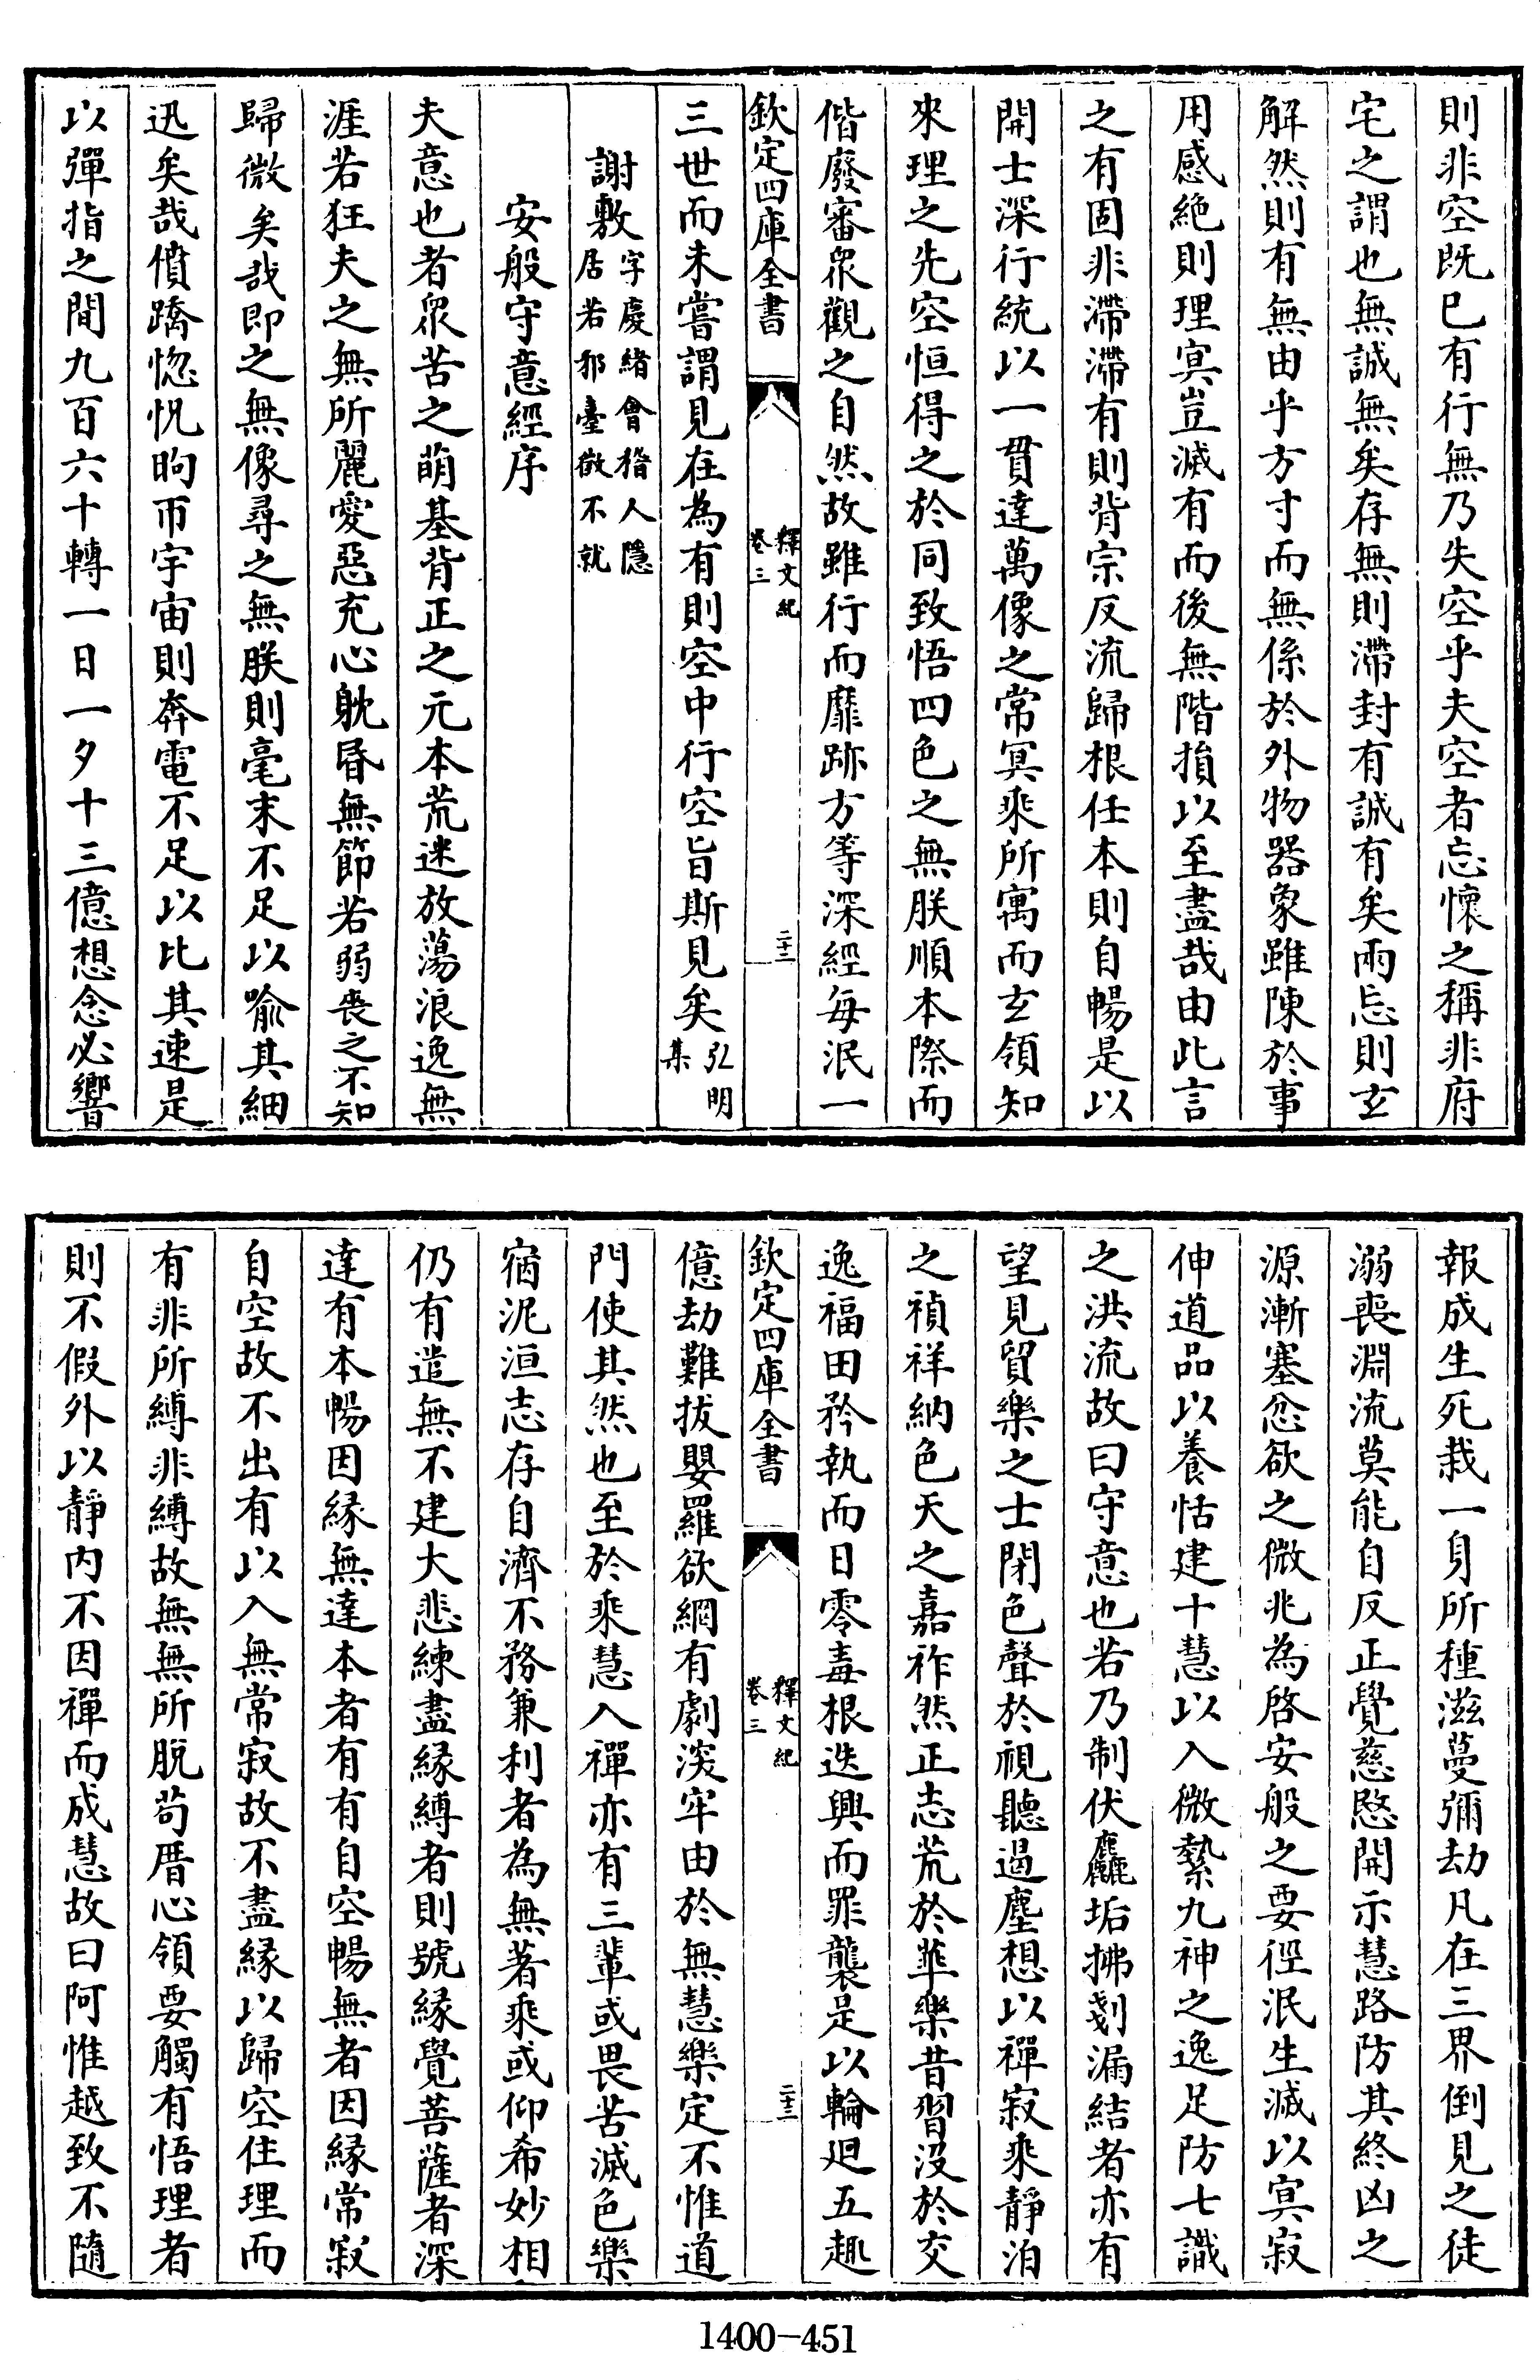 則非空既已有行無乃失空乎夫空者忘懷之稱非府
宅之謂也無誠無矣存無則滯封有誠有矣兩忘則玄
解然則有無由乎方寸而無係於外物器象雖陳於事
用感絶則理冥豈滅有而後無階損以至盡哉由此言
之有固非滯滯有則背宗反流歸根任本則自暢是以
開士深行統以一貫達萬像之常冥乘所寓而玄領知
來理之先空恒得之於同致悟四色之無朕順本際而
偕廢審衆觀之自然故雖行而靡跡方等深經每泯一
欽定四庫全書
釋文紀
卷三
二十三
三世而未嘗謂見在為有則空中行空旨斯見矣弘明
集
謝敷字慶緒會稽人隱
居若邪臺徵不就
安般守意經序
夫意也者衆苦之萌基背正之元本荒迷放蕩浪逸無
涯若狂夫之無所麗愛惡充心躭昬無節若弱喪之不知
歸微矣哉即之無像尋之無朕則毫末不足以喻其細
迅矣哉僨蹻惚怳眴帀宇宙則奔電不足以比其速是
以彈指之間九百六十轉一日一夕十三億想念必響
報成生死栽一身所種滋蔓彌劫凡在三界倒見之徒
溺喪淵流莫能自反正覺慈愍開示慧路防其終凶之
源漸塞忿欲之微兆為啓安般之要徑泯生滅以冥寂
伸道品以養恬建十慧以入微縶九神之逸足防七識
之洪流故曰守意也若乃制伏麤垢拂剗漏結者亦有
望見貿樂之士閉色聲於視聽遏塵想以禪寂乘靜泊
之禎祥納色天之嘉祚然正志荒於華樂昔習沒於交
逸福田矜執而日零毒根迭興而罪襲是以輪廻五趣
欽定四庫全書
釋文紀
卷三
二十三
億劫難拔嬰羅欲網有劇淡牢由於無慧樂定不惟道
門使其然也至於乘慧入禪亦有三輩或畏苦滅色樂
宿泥洹志存自濟不務兼利者為無著乘或仰希妙相
仍有遣無不建大悲練盡緣縛者則號緣覺菩薩者深
達有本暢因緣無達本者有有自空暢無者因緣常寂
自空故不出有以入無常寂故不盡緣以歸空住理而
有非所縛非縛故無無所脫苟厝心領要觸有悟理者
則不假外以靜内不因禪而成慧故曰阿惟越致不隨
1400-451